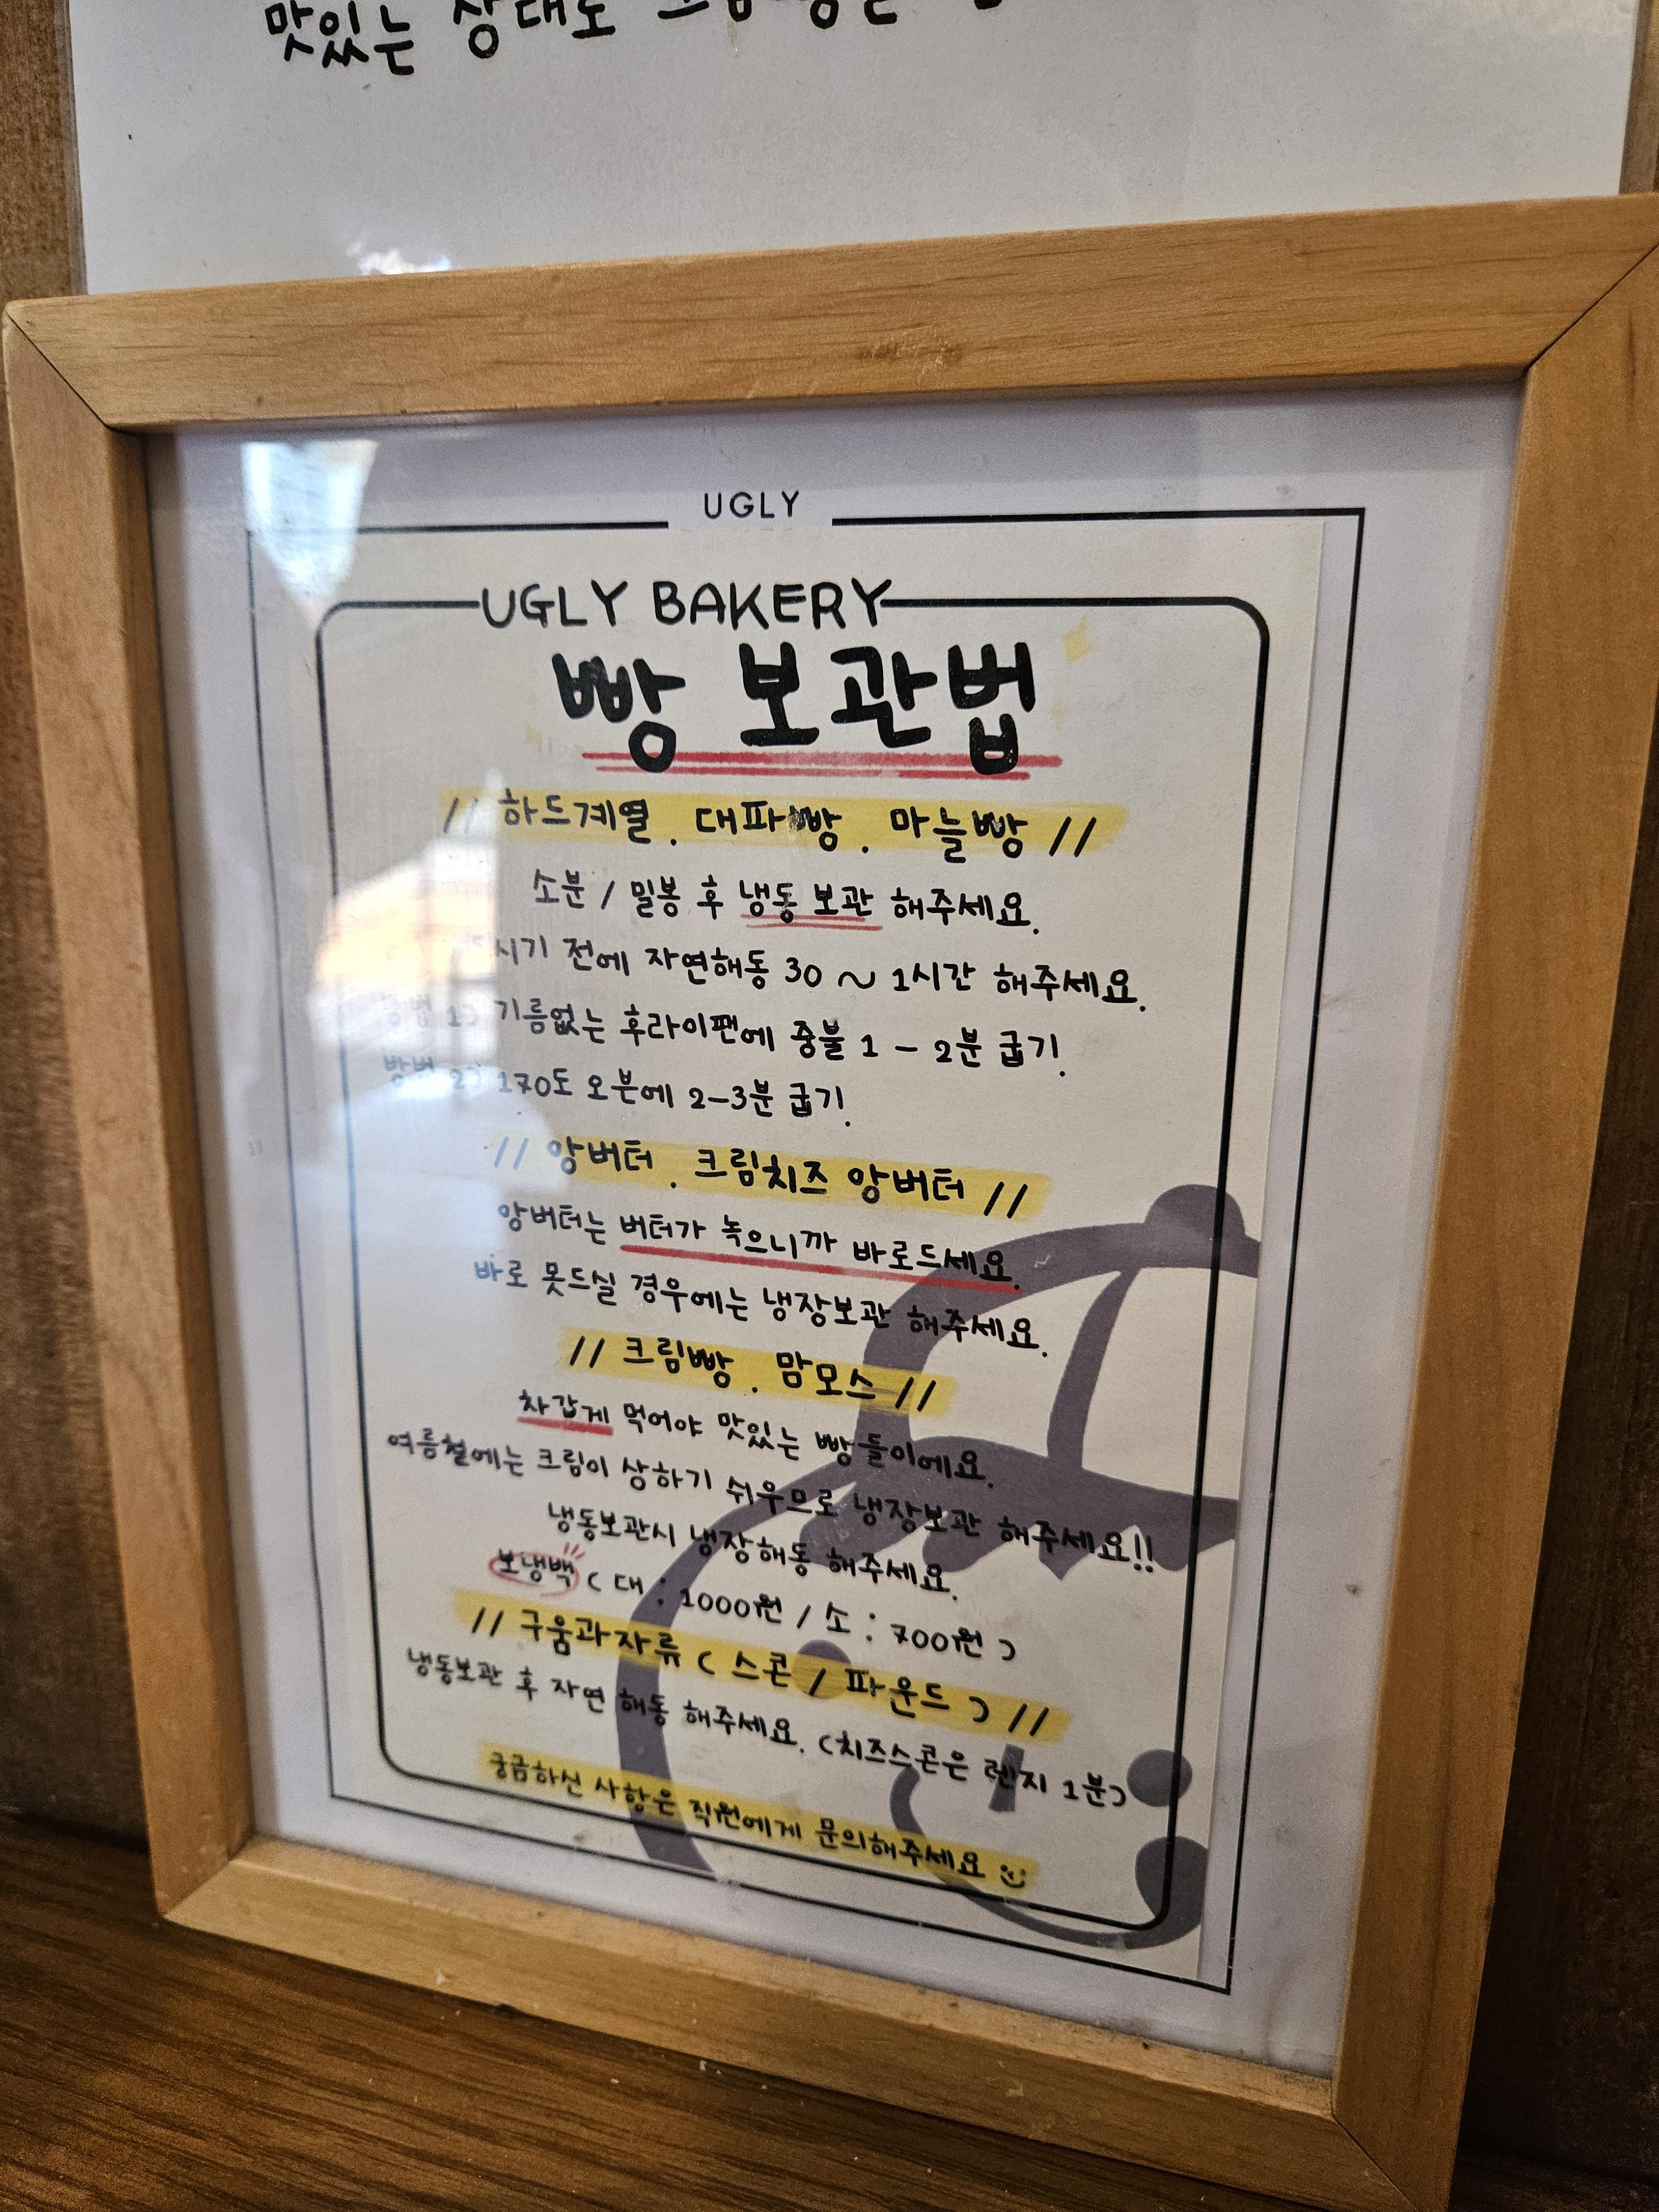 맛있는 상태로
UGLY
UGLY BAKERY
빵 보관법
// 하드계열. 대파빵. 마늘빵 //
소분 / 밀봉 후 냉동 보관 해주세요.
전에 자연해동 30 ~ 1시간 해주세요.
방법 1) 기름없는 후라이팬에 중불 1 - 2분 굽기.
방법 2) 170도 오븐에 2-3분 굽기.
// 앙버터. 크림치즈 앙버터 //
앙버터는 버터가 녹으니까 바로드세요.
바로 못드실 경우에는 냉장보관 해주세요.
// 크림빵. 맘모스 //
차갑게 먹어야 맛있는 빵들이에요.
여름철에는 크림이 상하기 쉬우므로 냉장보관 해주세요!!
냉동보관시 냉장해동 해주세요.
보냉백 ( 대 : 1000원 / 소 : 700원 )
// 구움과자류 ( 스콘 / 파운드 ) //
냉동보관 후 자연 해동 해주세요. (치즈스콘은 렌지 1분)
궁금하신 사항은 직원에게 문의해주세요